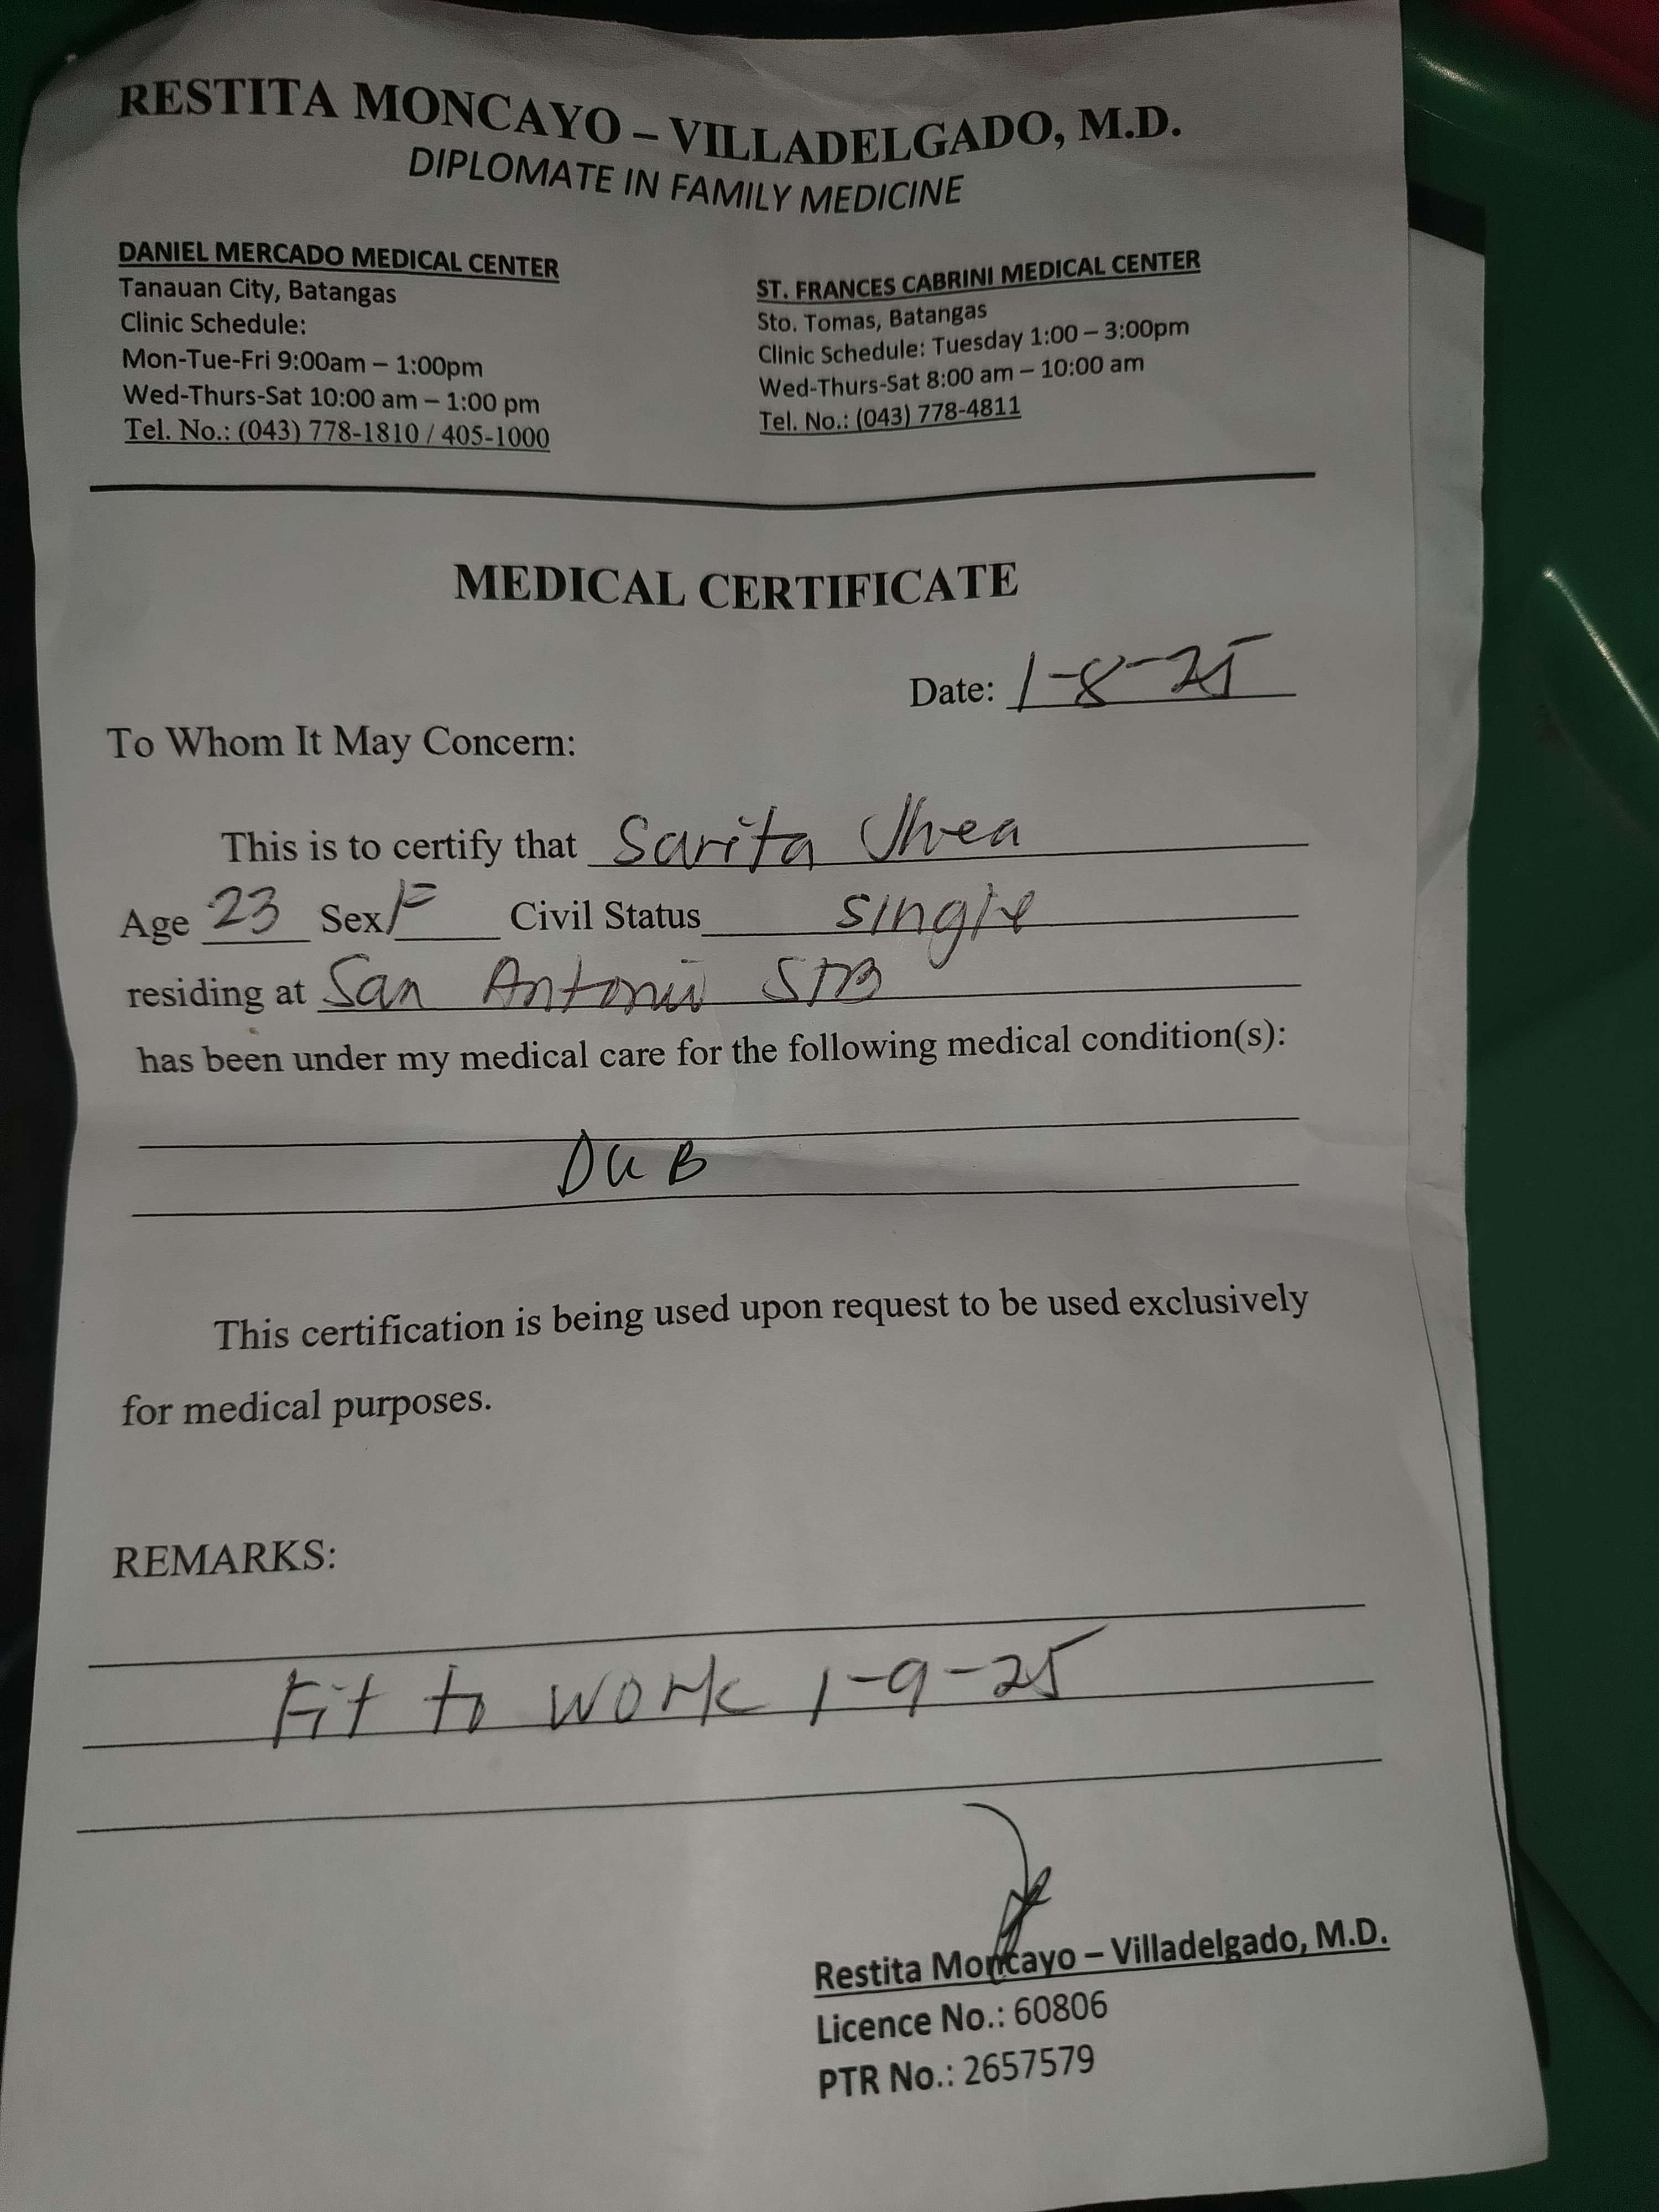 RESTITA MONCAYO – VILLADELGADO, M.D.
DIPLOMATE IN FAMILY MEDICINE
DANIEL MERCADO MEDICAL CENTER
Tanauan City, Batangas
Clinic Schedule:
Mon-Tue-Fri 9:00am – 1:00pm
Wed-Thurs-Sat 10:00 am – 1:00 pm
Tel. No.: (043) 778-1810 / 405-1000
ST. FRANCES CABRINI MEDICAL CENTER
Sto. Tomas, Batangas
Clinic Schedule: Tuesday 1:00 – 3:00pm
Wed-Thurs-Sat 8:00 am – 10:00 am
Tel. No.: (043) 778-4811
MEDICAL CERTIFICATE
Date: 1-8-25
To Whom It May Concern:
This is to certify that Sarita Jhea
Age 23 Sex F Civil Status single
residing at San Antonio STB
has been under my medical care for the following medical condition(s):
DUB
This certification is being used upon request to be used exclusively
for medical purposes.
REMARKS:
Fit to work 1-9-25
Restita Moncayo – Villadelgado, M.D.
Licence No.: 60806
PTR No.: 2657579